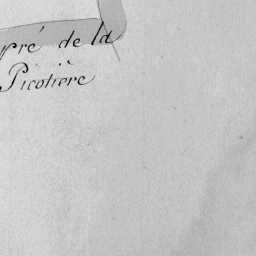 pré de la
Picotière